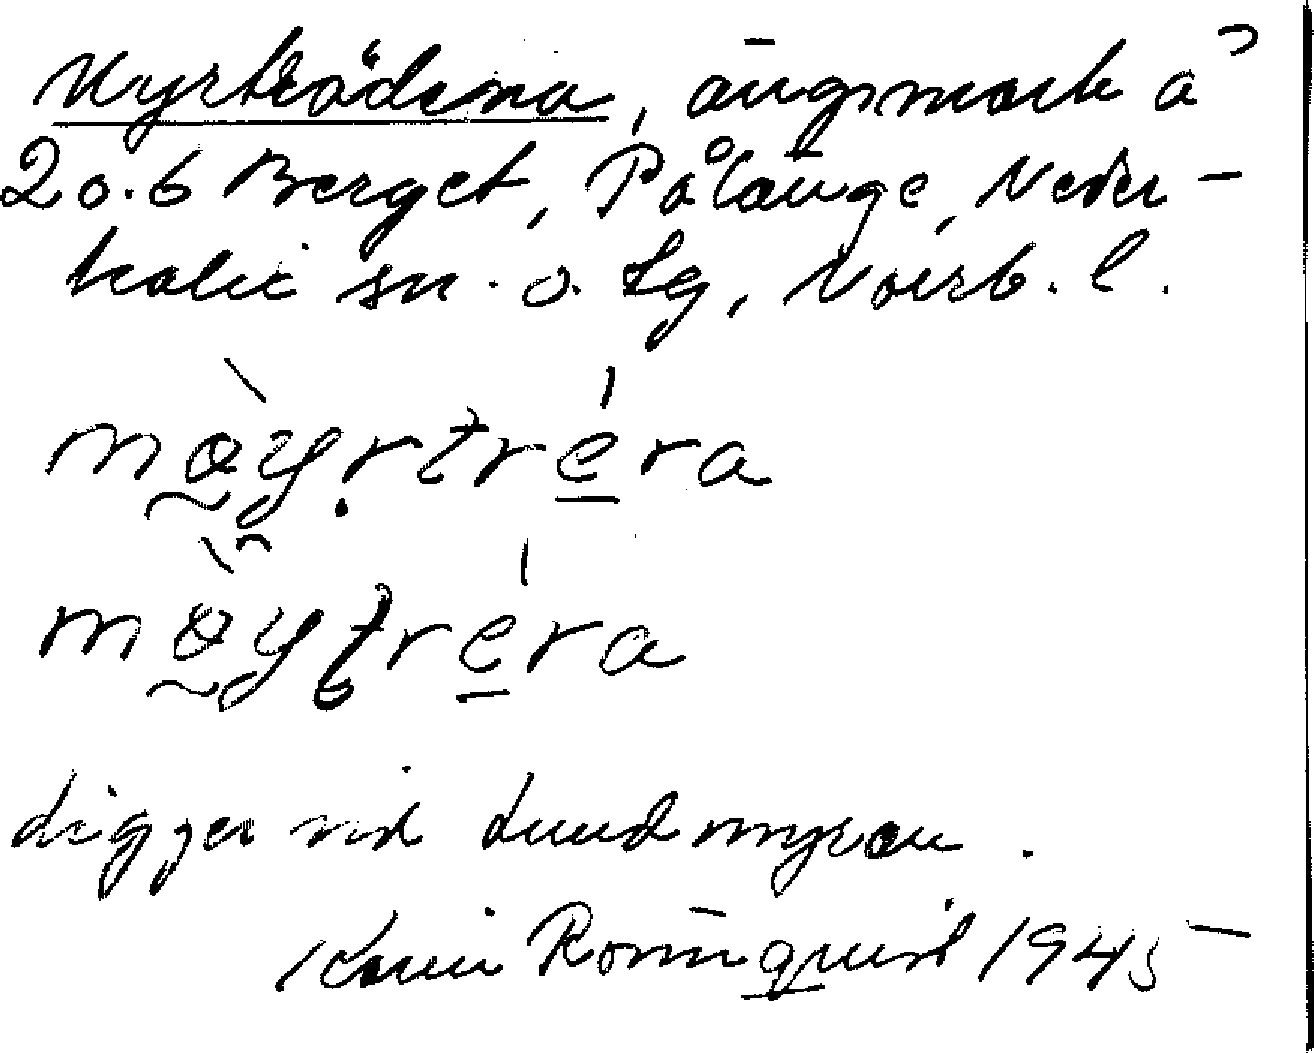 Myrträderna, ängsmark å
20.6 Berget, Pålänge, Neder-
kalix sn. o. tg, Norrb. l.
mø̀yrtréra
mø̀yṭréra
Ligger vid Lundmyran.
Karin Rönnquist 1945